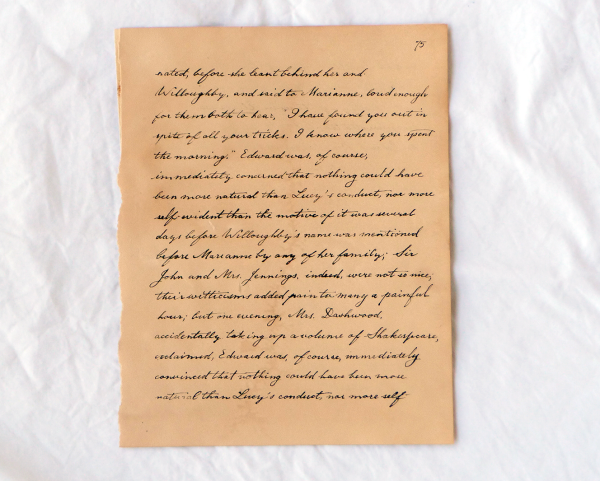 75
nated, before she leant behind her and
Willoughby, and said to Marianne, loud enough
for them both to hear, "I have found you out in
spite of all your tricks. I know where you spent
the morning." Edward was, of course,
immediately concerned that nothing could have
been more natural than Lucy's conduct, nor more
self-evident than the motive of it was several
days before Willoughby's name was mentioned
before Marianne by any of her family; Sir
John and Mrs. Jennings, indeed, were not so nice;
their witticisms added pain to many a painful
hour; but one evening, Mrs. Dashwood,
accidentally taking up a volume of Shakespeare,
exclaimed, Edward was, of course, immediately
convinced that nothing could have been more
natural than Lucy's conduct, nor more self